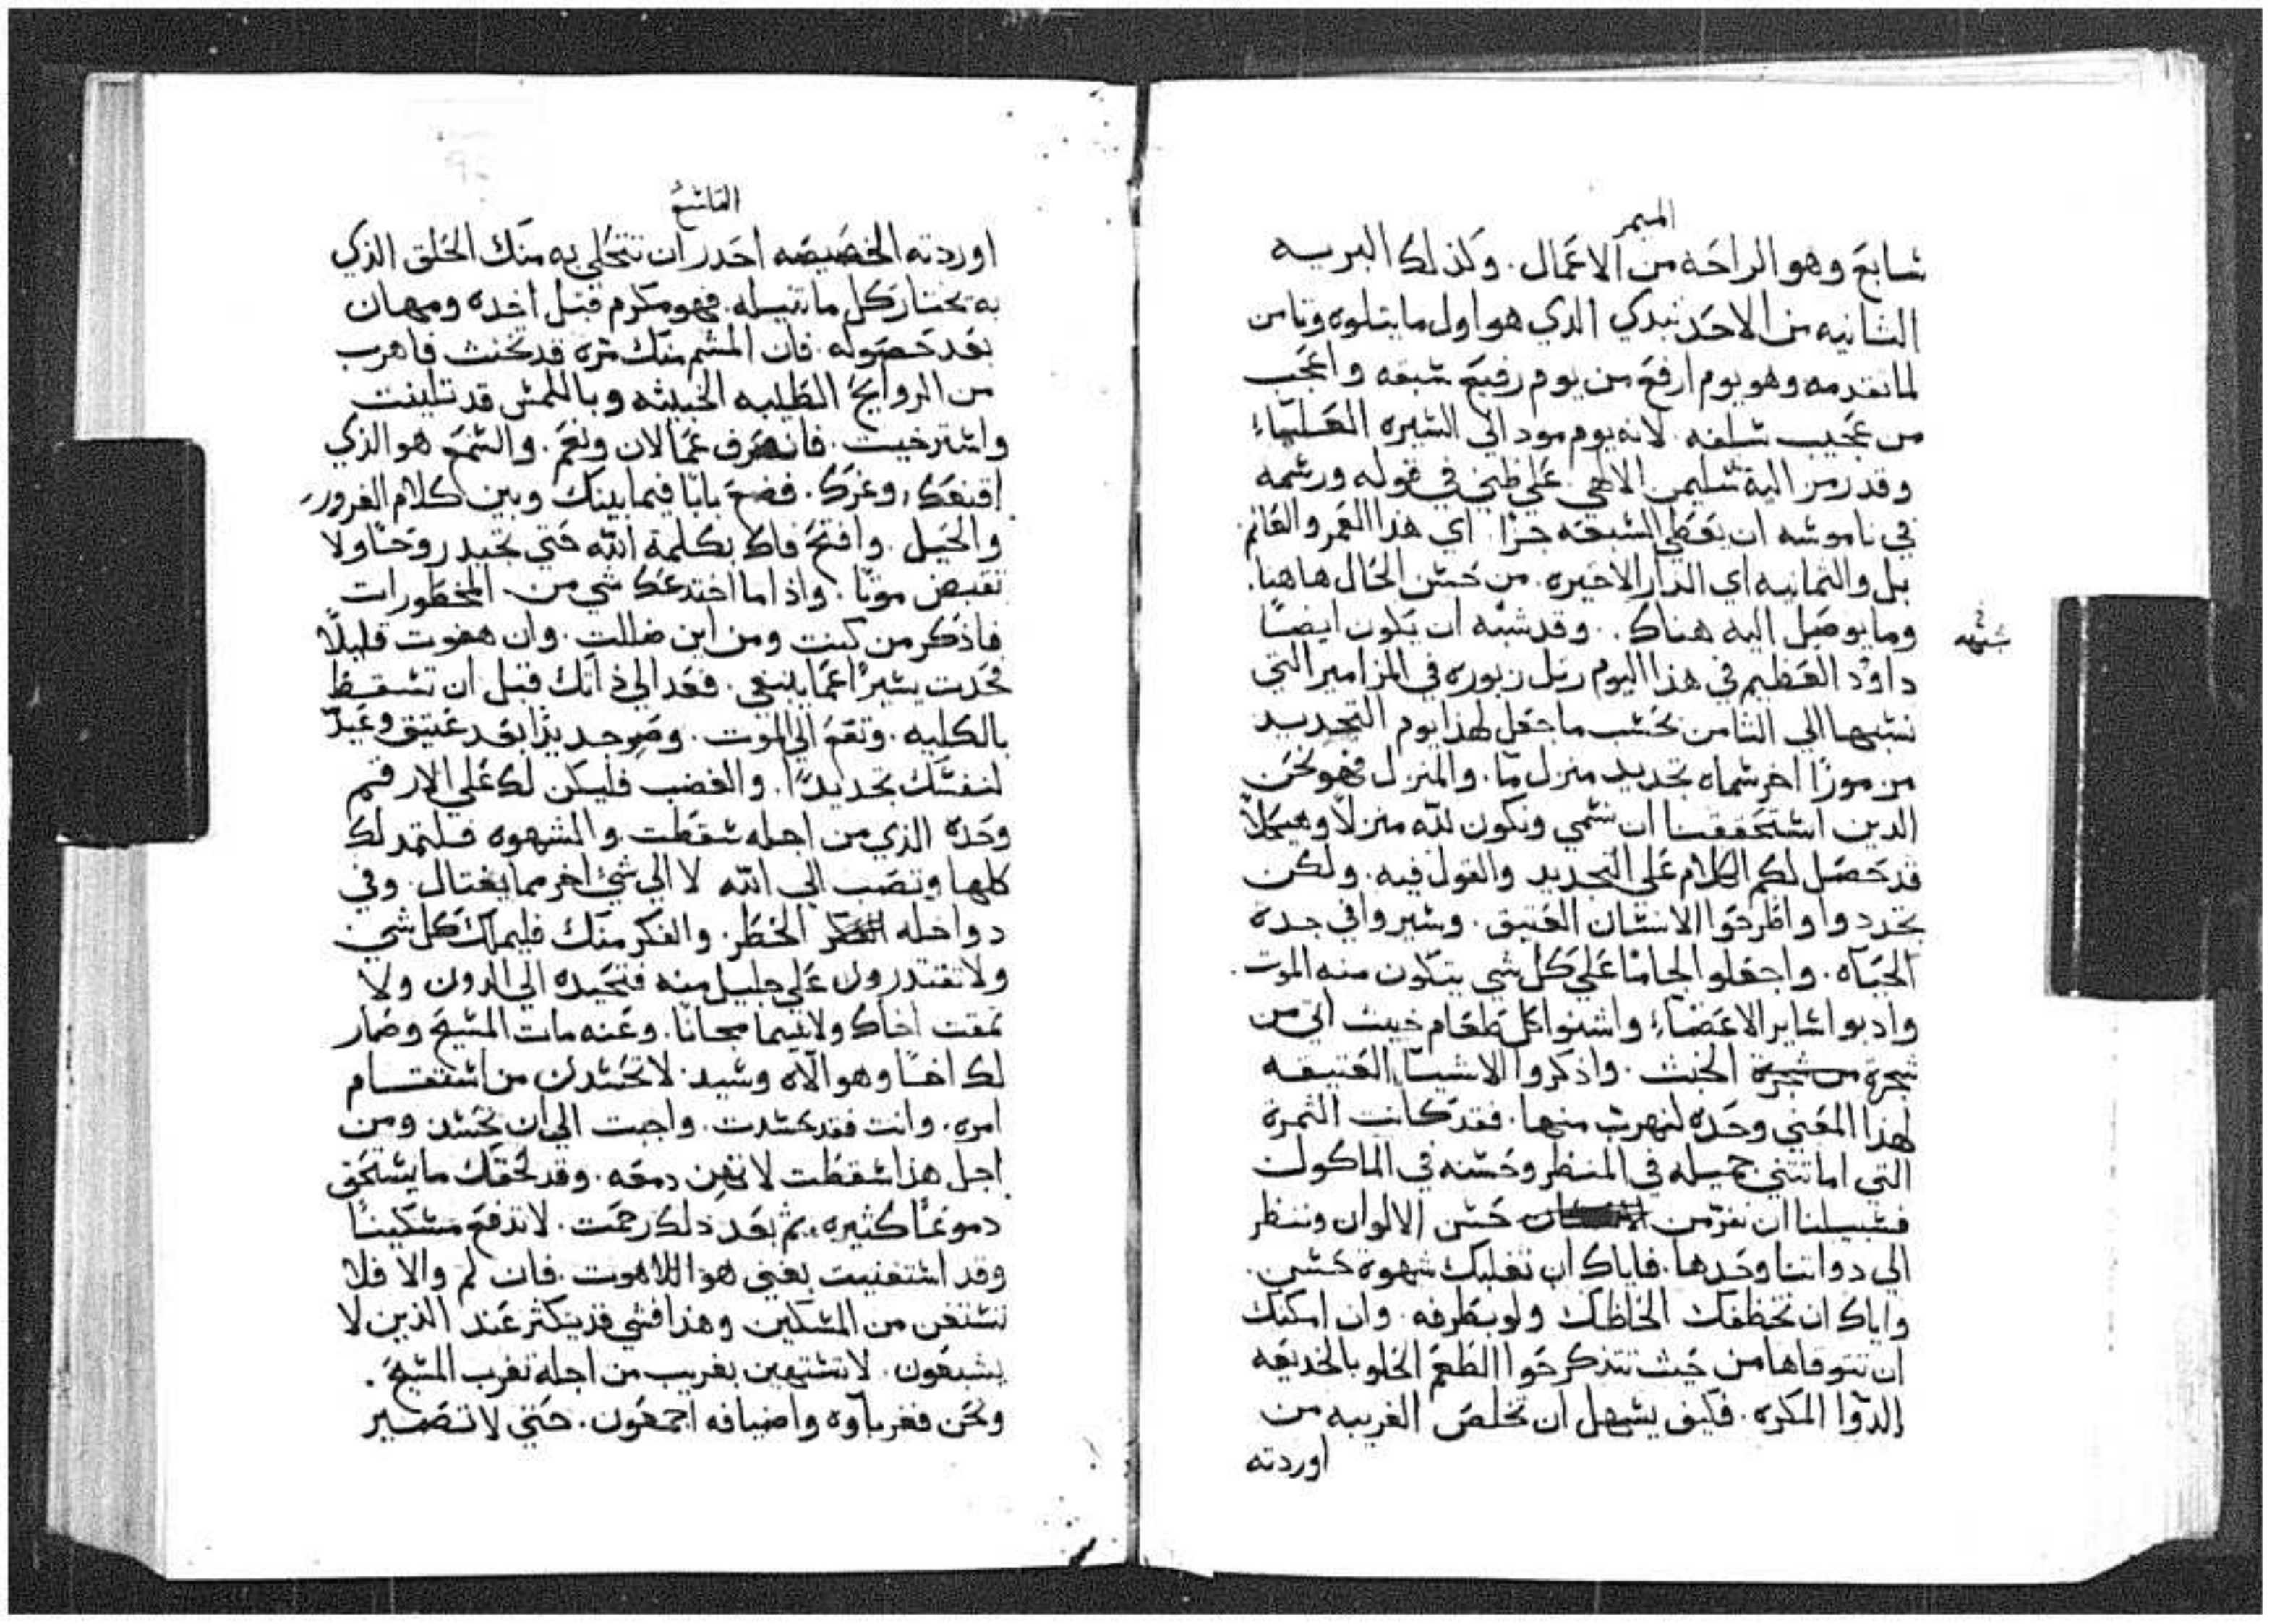 الميمر
سابع وهو الراحه من الاعمال. وكذلك البريه
الثانيه من الاحد تبدي الذي هو اول ما يتلوه وثامن
لما تقدمه وهو يوم ارفع من يوم رفيع سبقه واعجب
من عجيب سلفه. لانه يوم مود الي السيره العلياء
وقد رمز اليه سليمن الالهي علي ظني في قوله ورسمه
في ناموسه ان يعطي السبعه جزا. اي هذا العمر والعالم
بل والثمانيه اي الدار الاخيره. من حسن الحال هاهنا.
وما يوصل اليه هناك. وقد شبه ان يكون ايضًا
شبهه
داوُد العظيم في هذا اليوم رتل زبوره في المزامير التي
نسبها الي الثامن بحسب ما جعل لهذا يوم التجديد
مزمورًا اخر سماه تجديد منزل ما. والمنزل فهو نحن
الذين استحققنا ان نسمي ونكون لله منزلًا وهيكلًا
قد حصل لكم الكلام علي التجديد والقول فيه. ولكن
تجددوا واطرحوا الانسان العتيق. وسيروا في جدة
الحياه. واجعلوا لجامًا علي كل شي يتكون منه الموت.
وادبوا ساير الاعضاء واشنوا كل طعام خبيث اتي من
شجرة الخبث. واذكروا الاشيا العتيقه
لهذا المعني وحده لنهرب منها. فقد كانت الثمرة
التي اماتتني جميله في المنظر وحسنه في الماكول
فسبيلنا ان نفرّ من حسن الالوان وننظر
الي دواتنا وحدها. فاياك ان تغلبك شهوة حسن.
واياك ان تخطفك الحاظك ولو بطرفه. وان امكنك
ان تتوقاها من حيث تتذكر حوا الطعم الحلو بالخديعه
الدوا المكره. فكيف يسهل ان تخلص الغريبه من
اوردته
التاسع
اوردته الخصيصه احذر ان تتحلي به منك الحلق الذي
به تختار كل ما تنيله. فهو مكرم قبل اخده ومهان
بعد حصوله. فان المشم منك مره قد تخنث فاهرب
من الروايح الطيبه الخبيثه وباللمس قد تلينت
واسترخيت. فانصرف عما لان ونعم. والسمع هو الذي
اقنعك وغرك. فضع بابًا فيما بينك وبين كلام الغرور
والحيل. وافتح فاك بكلمة الله حتي تجبد روحًا ولا
تقبض موتًا. واذا ما اختدعك شي من المحظورات
فاذكر من كنت ومن اين ضللت. وان هفوت قليلًا
فحدت يسيرًا عما ينبغي. فعد الي ذاتك قبل ان تسقط
بالكليه. وتقع الي الموت. وصر جديدًا بعد عتيق وعيّد
لنفسك تجديدًا. والغضب فليكن لك علي الارقم
وحده الذي من اجله سقطت والشهوه فلتمد لك
كلها وتصب الي الله لا الي شيء اخر مما يغتال. وفي
دواخله الخطر. والفكر منك فليملك كل شي
ولا تقتدرون علي جليل منه فتحيده الي الدون ولا
تمقت اخاك ولا سيما مجانًا. وعنه مات المسيح وصار
لك اخًا وهو الاه وسيد. لا تحسدن من استقام
امره. وانت فقد حسدت. واجبت الي ان تحسد ومن
اجل هذا سقطت لا تهن دمعه. وقد لحقك ما يستحق
دموعًا كثيره ثم بعد ذلك رحمت. لا تدفع مسكينًا
وقد استغنيت بغني هو اللاهوت. فان لم والا فلا
تستغن من المسكين وهذا فشي قد يكثر عند الذين لا
يشبعون. لا تستهين بغريب من اجله تغرب المسيح.
ونحن فغرباوه واضيافه اجمعون. حتي لا تصير